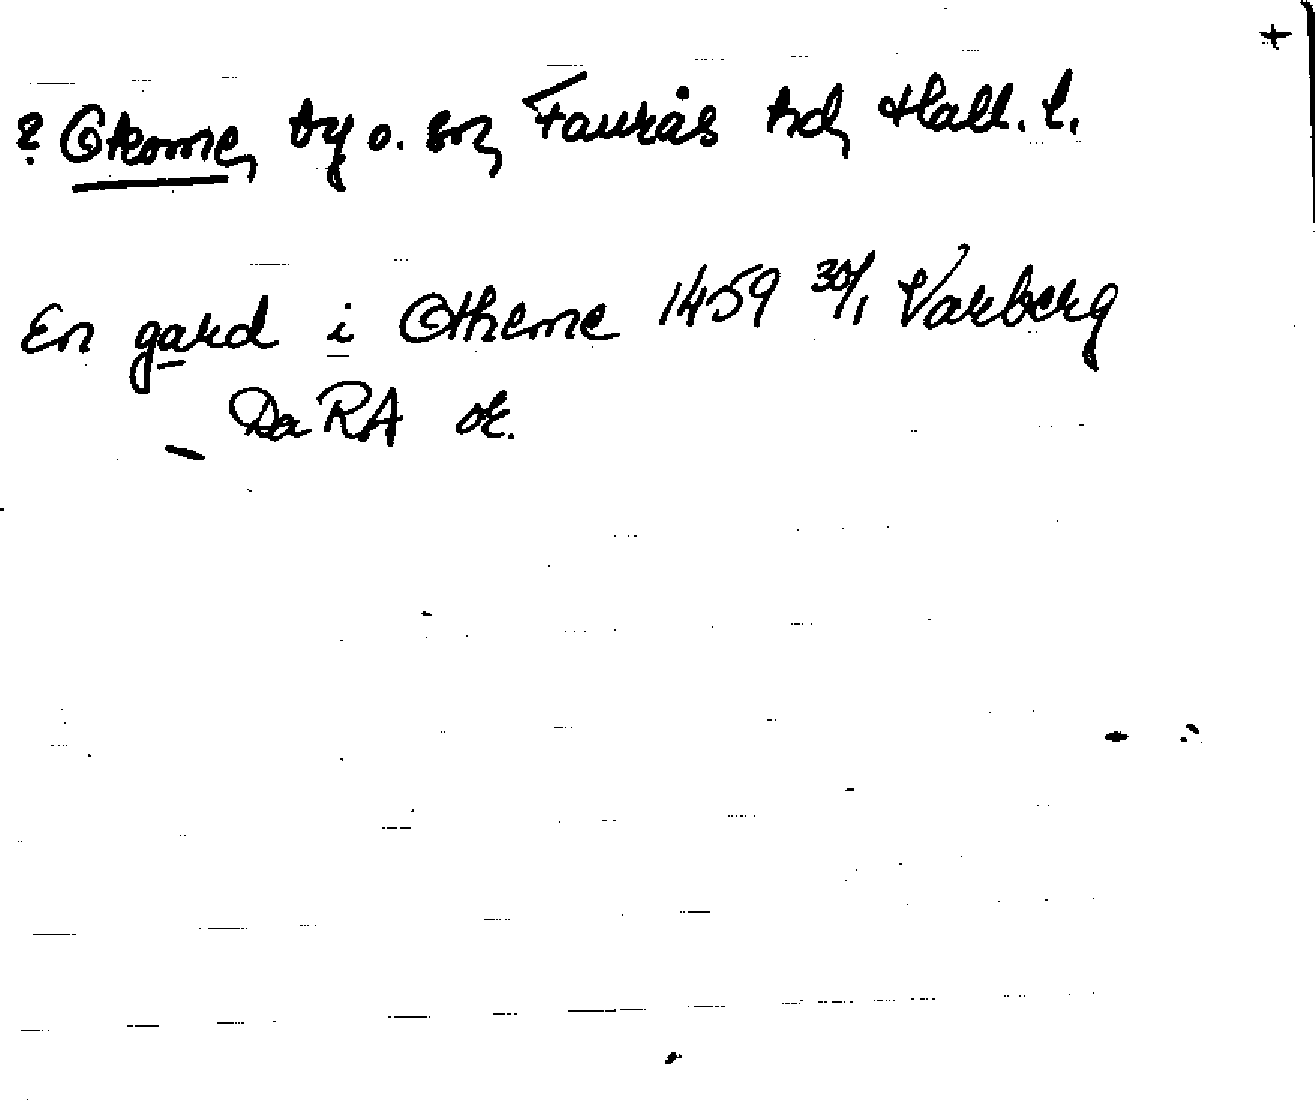 +
? Okome, by o. sn, Faurås hd, Hall. l.
En gard i Otheme 1459 30/1 Varberg
Da RA or.